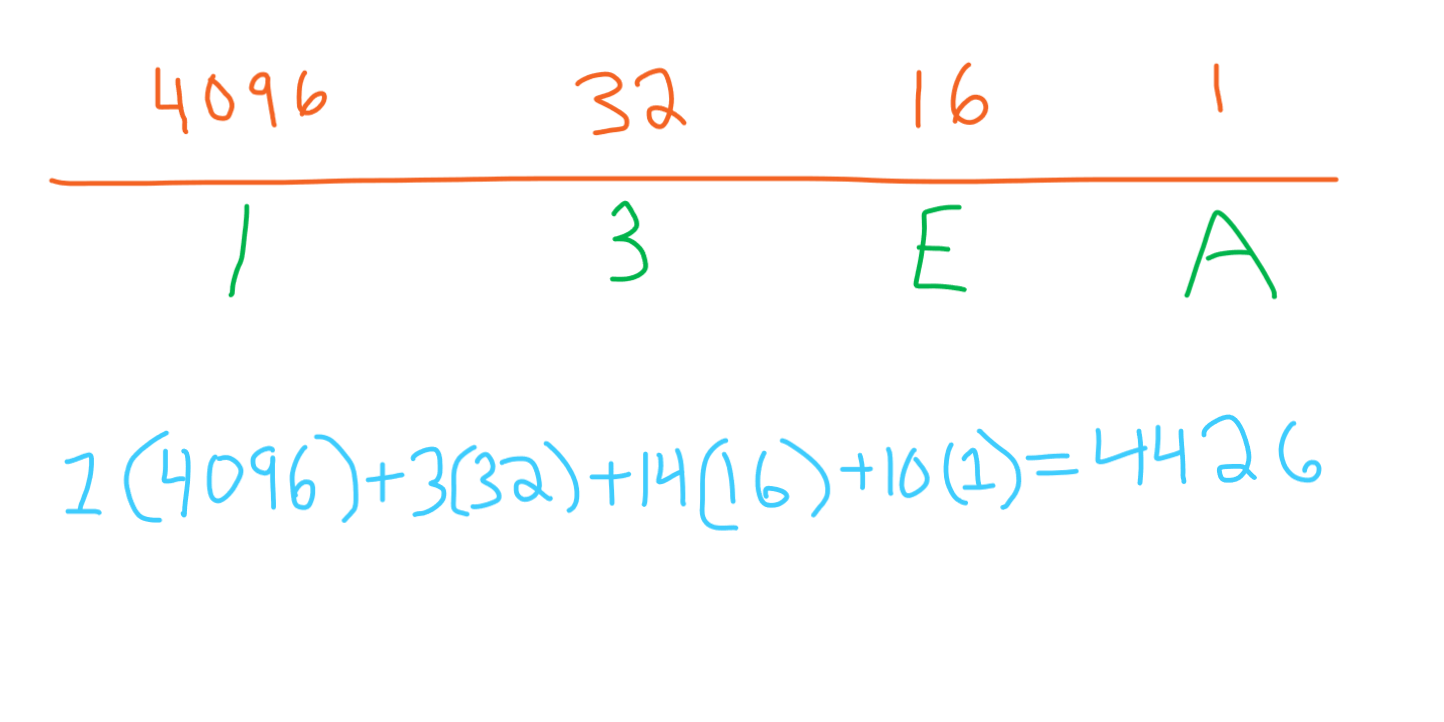 4096 32 16 1
1 3 E A
1(4096)+3(32)+14(16)+10(1)=4426